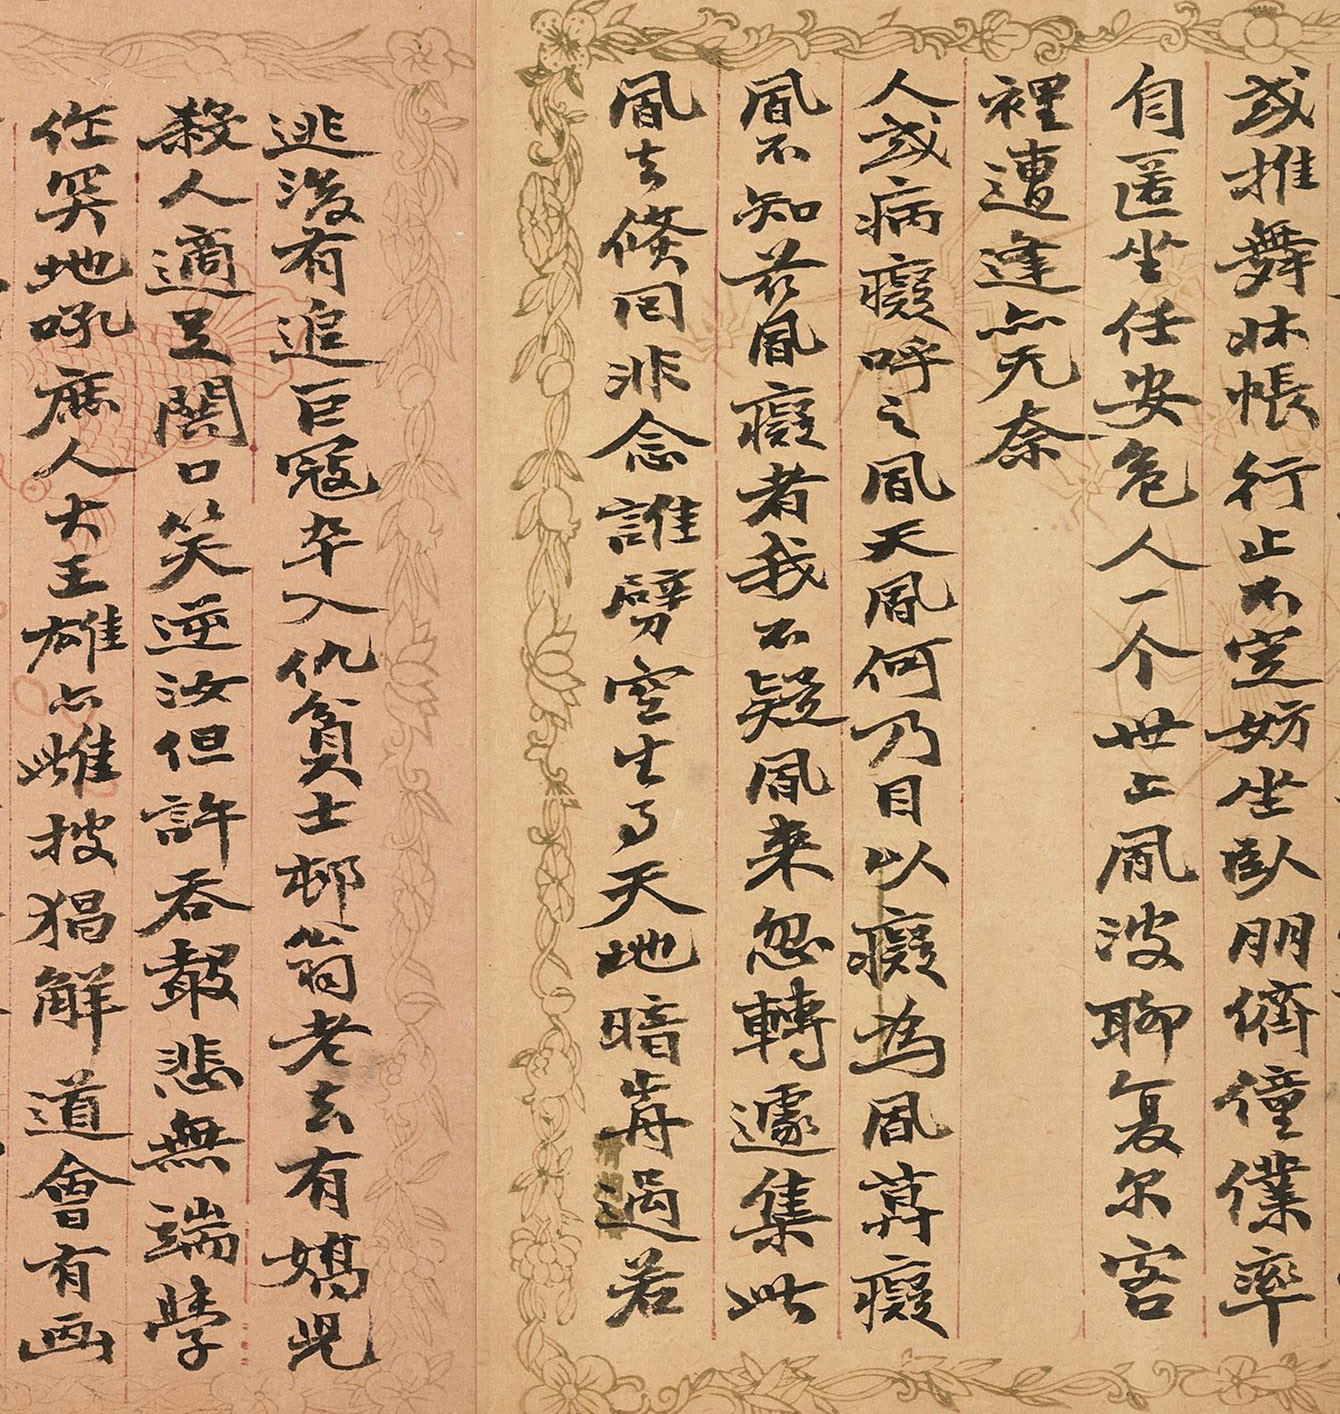 或推舞牀帳行止不定妨坐臥朋儕僮僕率
自匿坐任安危人一个世上風波聊复尔客
裡遭逢亦无奈
人或病癡呼之風天風何乃目以癡為風算癡
風不知茲風癡者我不疑風来忽轉遽集此
風去倏同非念誰劈空生了天地暗岢過若
逃後有追巨寇卒入仇貧士邨翁老去有嬌児
殺人適足闊口笑逆汝但許吞聲悲無端學
作哭地吼庶人大王雄亦雌披猖解道會有画